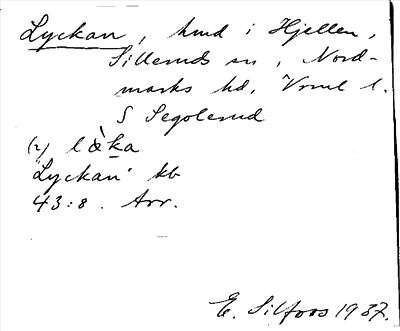 Lyckan, hmd i Hjellen,
Silleruds sn, Nord-
marks hd, Vrml l.
S Segolerud
(2) læ̀ka
"Lyckan" kb
43:8. Arr.
E. Silfors 1937.